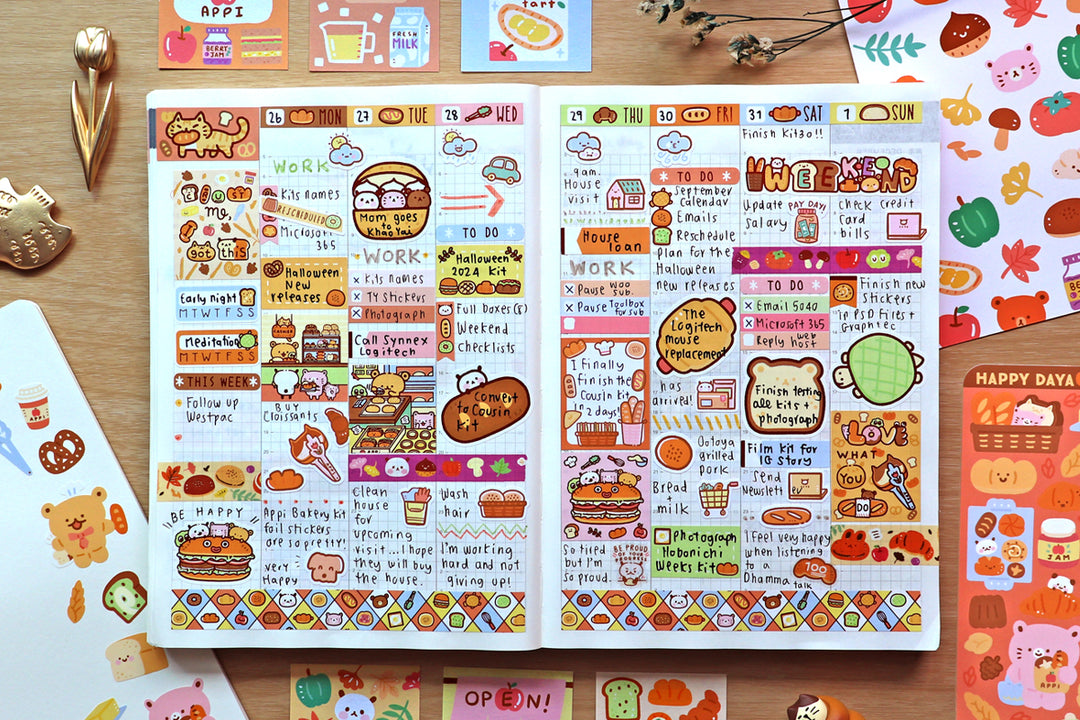 APPI
BERRY
JAM
FRESH
MILK
tart
26 MON
27 TUE
28 WED
29 THU
30 FRI
31 SAT
1 SUN
Me,
got this
Early night
M T W T F S S
Meditation
M T W T F S S
THIS WEEK
Follow up
Westpac
BE HAPPY
WORK
Kits names
RESCHEDULED
Microsoft
365
Halloween
New
releases
BUY
Croissants
Appi Bakery kit
foil stickers
are so pretty!
very
Happy
Mom goes
to
Khao Yai
WORK
Kits names
TY Stickers
Photograph
Call Synnex
Logitech
Clean
house
for
upcoming
visit...I hope
they will buy
the house.
TO DO
Halloween
2024 Kit
Full boxes(s)
Weekend
Checklists
Convert
to Cousin
kit
Wash
hair
I'm working
hard and not
giving up!
9am.
House
visit
House
loan
WORK
Pause Woo
sub.
Pause Toolbox
for sub
I finally
finish the
Cousin kit
in 2 days!
So tired
but I'm
so proud.
BE PROUD
OF YOUR
PROGRESS
TO DO
September
calendar
Emails
Reschedule
plan for the
Halloween
new releases
The
Logitech
mouse
replacement
has
arrived!
Ootoya
grilled
pork
Bread
+
milk
Photograph
Hobonichi
Weeks kit
Finish kit30!!
WEEKEND
Update
salary
PAY DAY!
TO DO
Email 5040
Microsoft 365
Reply web
host
Finish testing
all kits +
photograph
Film kit for
IG Story
Send
Newslett
I feel very happy
when listening
to a
Dhamma talk
100
check credit
card
bills
Finish new
stickers
in PSD Files +
Graphtec
LOVE
WHAT
YOU
DO
HAPPY DAYA
JAM
APPI
OPEN!